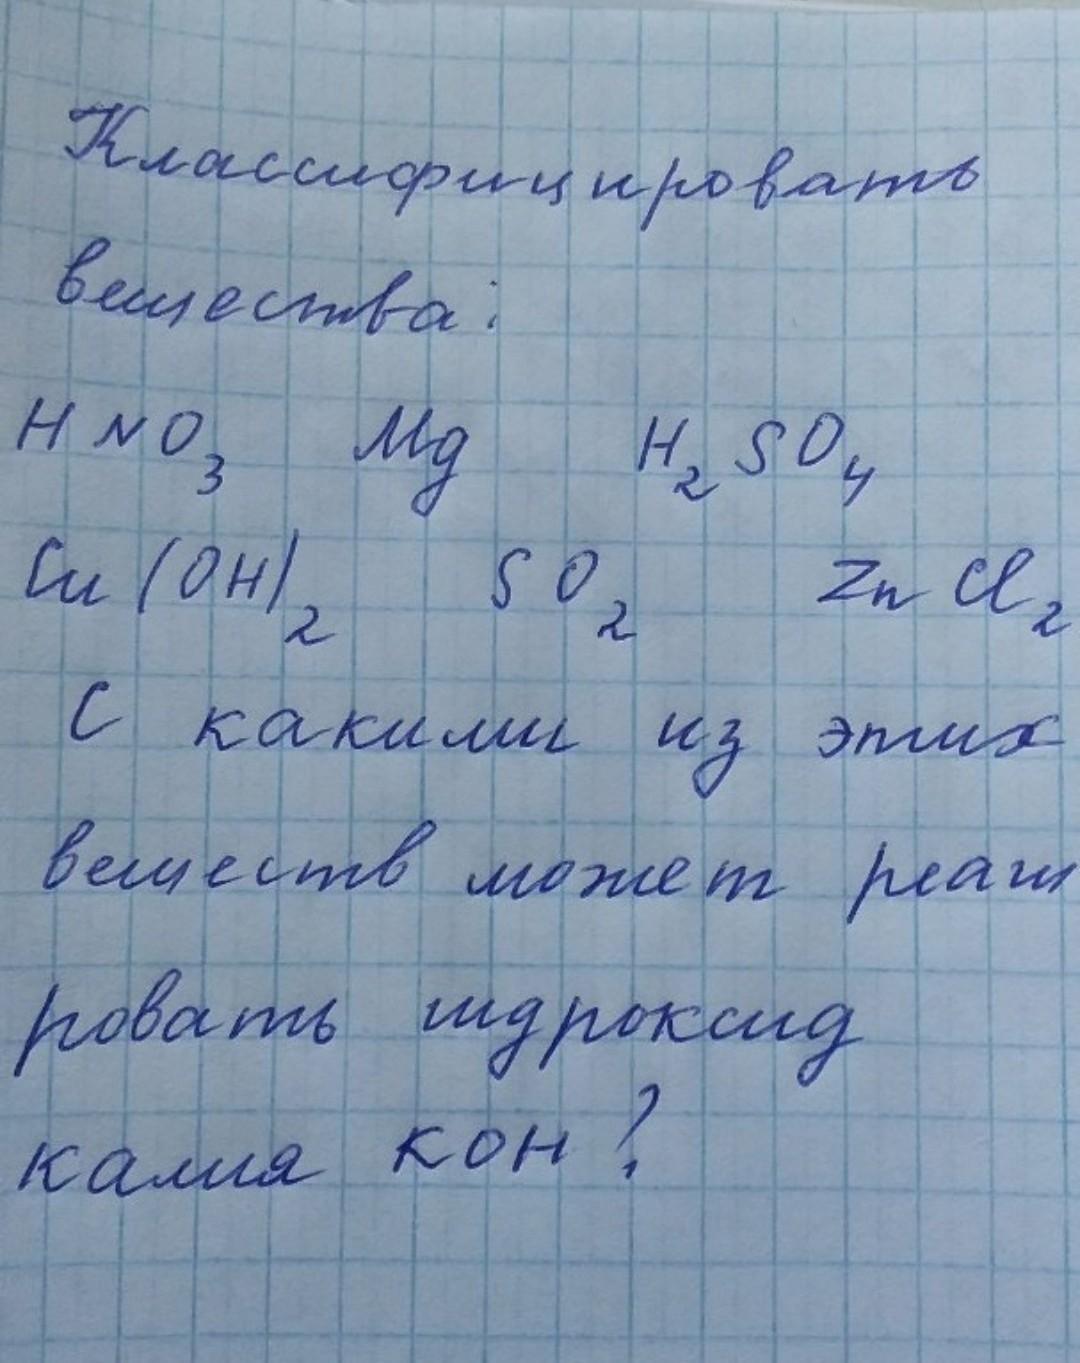 Классифицировать
вещества:
HNO₃ Mg H₂SO₄
Cu(OH)₂ SO₂ ZnCl₂
С какими из этих
веществ может реаги
ровать гидроксид
калия КОН?